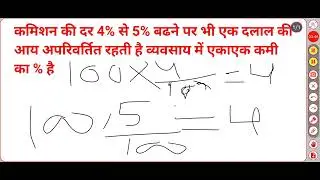 कमिशन की दर 4% से 5% बढने पर भी एक दलाल की
आय अपरिवर्तित रहती है व्यवसाय में एकाएक कमी
का % है
100×4/100=4
100,5/100=4